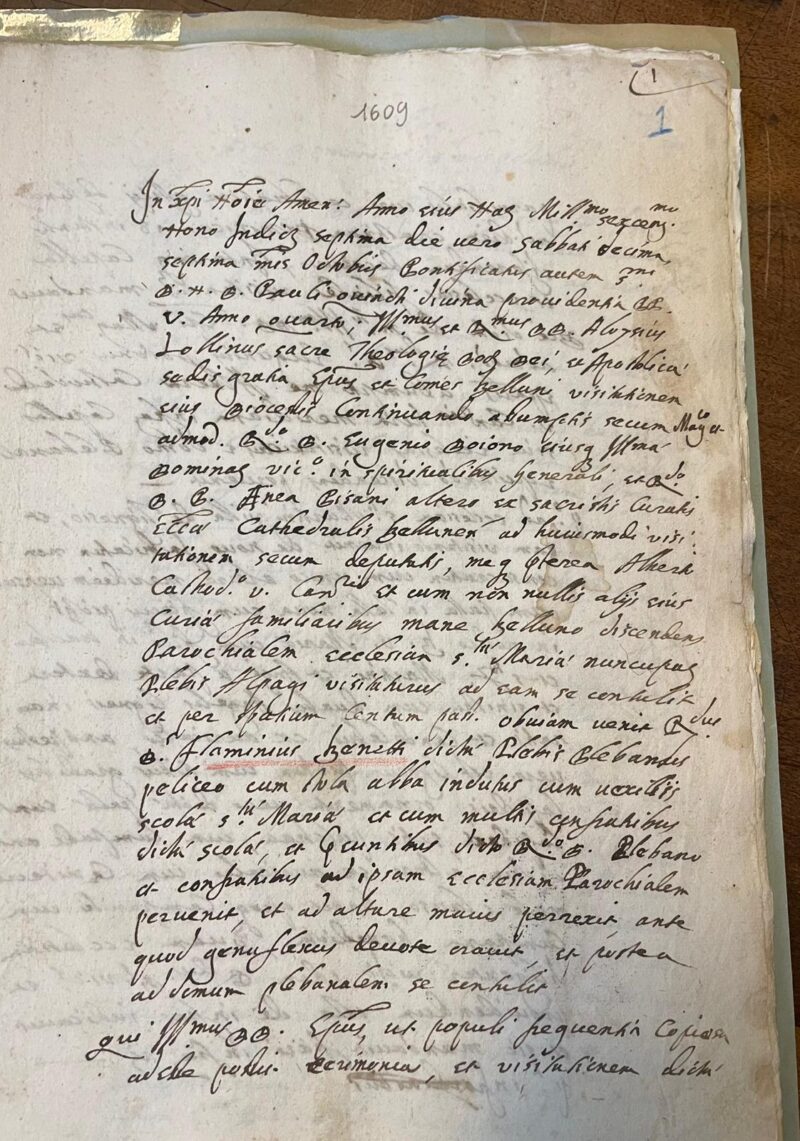 1609
1
1
In Xpi No͞ie Amen: Anno eius Nat. Mill.mo sexcent.mo
Nono Indict. septima die vero Sabbati decima
septima m͞is Octobris Pontificatus autem S.mi
D. N. D. Pauli Quinti divina providentia PP.
V. Anno Quarto; Ill.mus et R.mus DD. Aloysius
Lollinus sacre Theologię Doct. Dei, et Apostolica
sedis gratia Ep͞us et Comes Belluni visitationem
eius Diocesis Continuando assumptis secum Mag.co et
admod. R.do D. Eugenio Doiono eiusq Ill.ma
Dominat. vic.o in spiritualibus Generali, et R.do
D. P. Ænea Pisani altero ex sacristis Curatis
Eccl͞ia Cathedralis Bellunen ad huiusmodi visi:
tationem secum deputatis, meq pterea Alberto
Cathod.o v. Can.rio et cum non nullis alijs eius
Curia familiaribus mane Belluno discendens
Parochialem Ecclesiam S.ta Maria nuncupat
Plebis Alpagi visitaturus ad eam se contulit
et per spatium Centum pass. obuiam venit R.dus
D. Flaminius Zanetti dicta Plebis Plebanus
peliceo cum stola alba indutus cum uexillis
scola S.ta Maria et cum multis confratribus
dicta scola, et sequentibus dicto R.do D. Plebano
et confratribus ad ipsam Ecclesiam Parochialem
peruenit, et ad altare maius perrexit, ante
quod genuflexus deuote orauit, et postea
ad domum plebanalem se contulit
Qui Ill.mus DD. Ep͞us, ut populi frequentia Copiosa
adesse possit cerimonia, et visitationem dicta